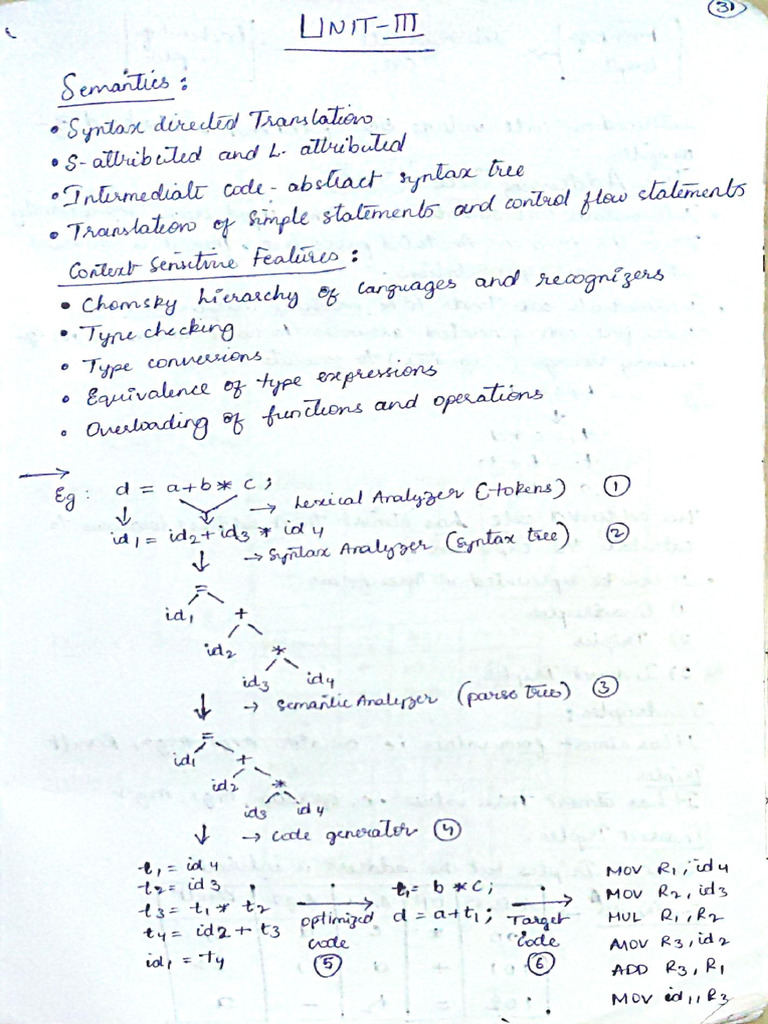 31
UNIT-III
Semantics :
• Syntax directed Translation
• S-attributed and L-attributed
• Intermediate code - abstract syntax tree
• Translation of simple statements and control flow statements
Context Sensitive Features :
• Chomsky hierarchy of languages and recognizers
• Type checking
• Type conversions
• Equivalence of type expressions
• Overloading of functions and operations
→ Eg : d = a+b * c ;
→ Lexical Analyzer (tokens) ①
id1 = id2 + id3 * id4
→ Syntax Analyzer (syntax tree) ②
=
id1 +
id2 *
id3 id4
→ Semantic Analyzer (parse tree) ③
=
id1 +
id2 *
id3 id4
→ code generator ④
t1 = id4
t2 = id3
t3 = t1 * t2
t4 = id2 + t3
id1 = t4
optimized code ⑤
t1 = b * c ;
d = a + t1 ;
Target code ⑥
MOV R1, id4
MOV R2, id3
MUL R1, R2
MOV R3, id2
ADD R3, R1
MOV id1, R3